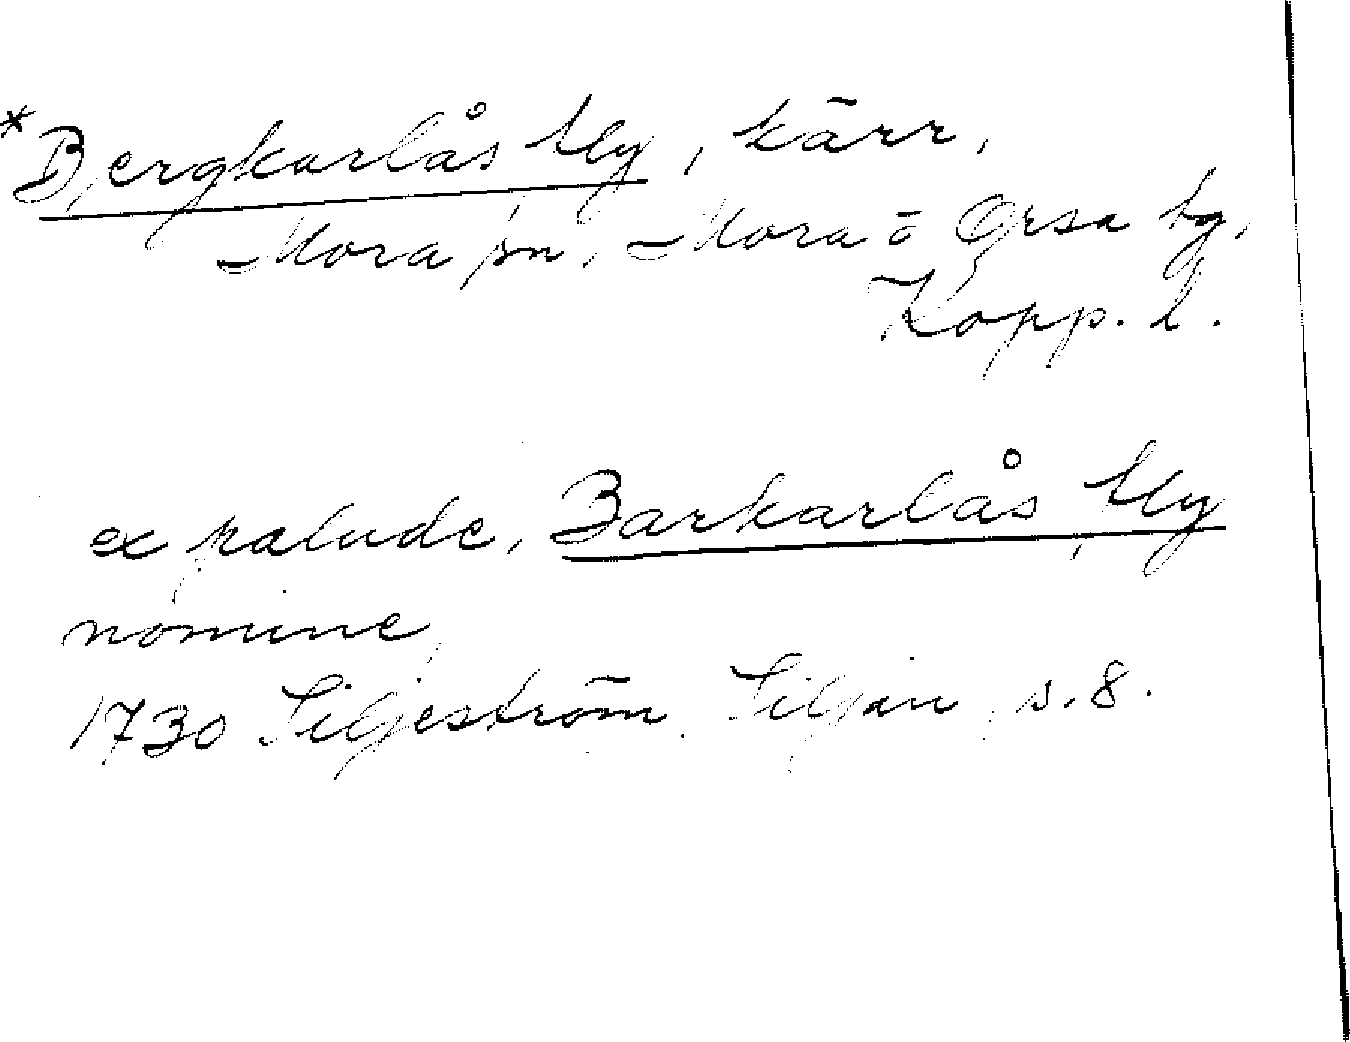 *Bergkarlås Uly, kärr,
Mora sn, Mora o Orsa tg,
Kopp. l.
ex palude, Barkarlås Uly
nomine
1730 Siljeström Siljan s. 8.